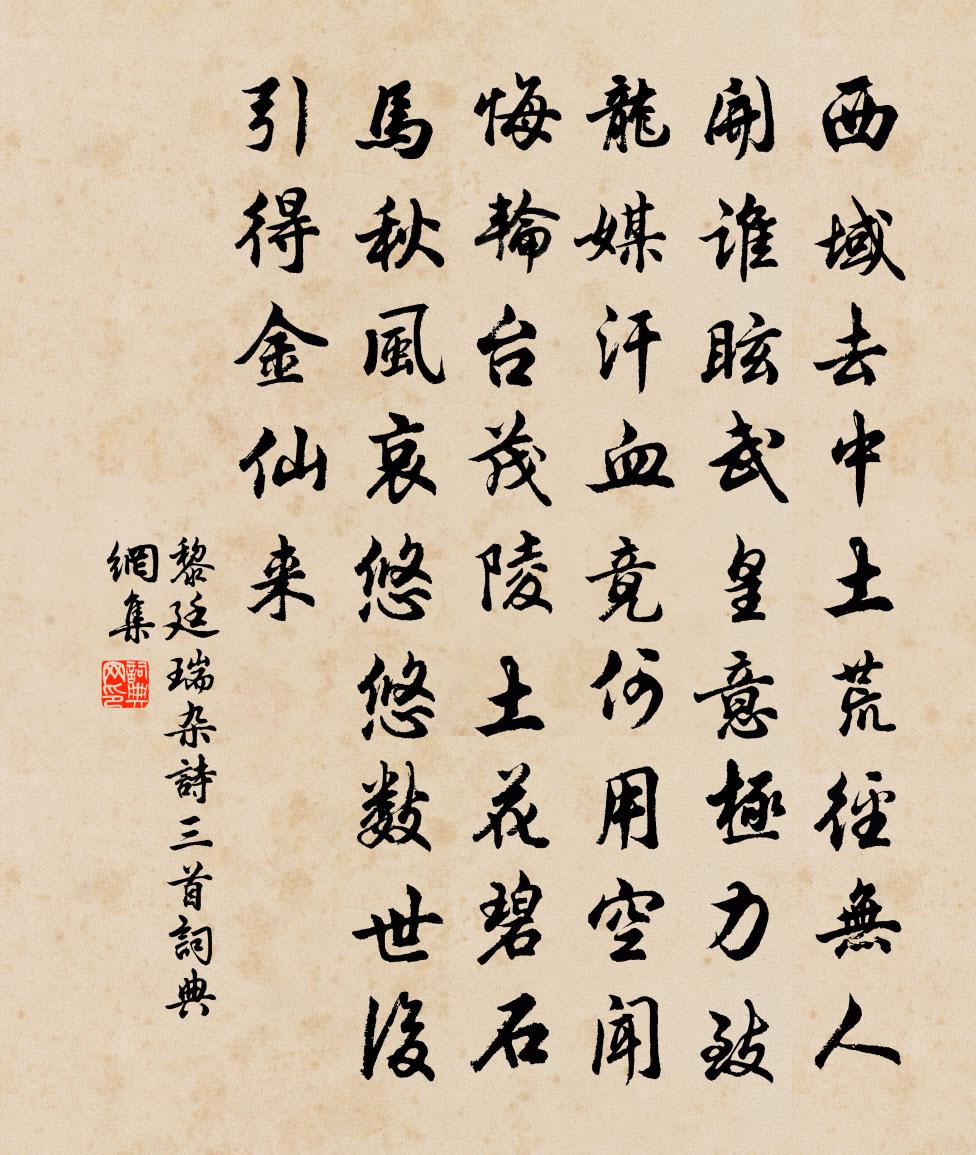 西域去中土荒徑無人
開誰眩武皇意極力致
龍媒汗血竟何用空聞
悔輪台茂陵土花碧石
馬秋風哀悠悠数世後
引得金仙来
黎廷瑞杂詩三首詞典
網集
詞典網印